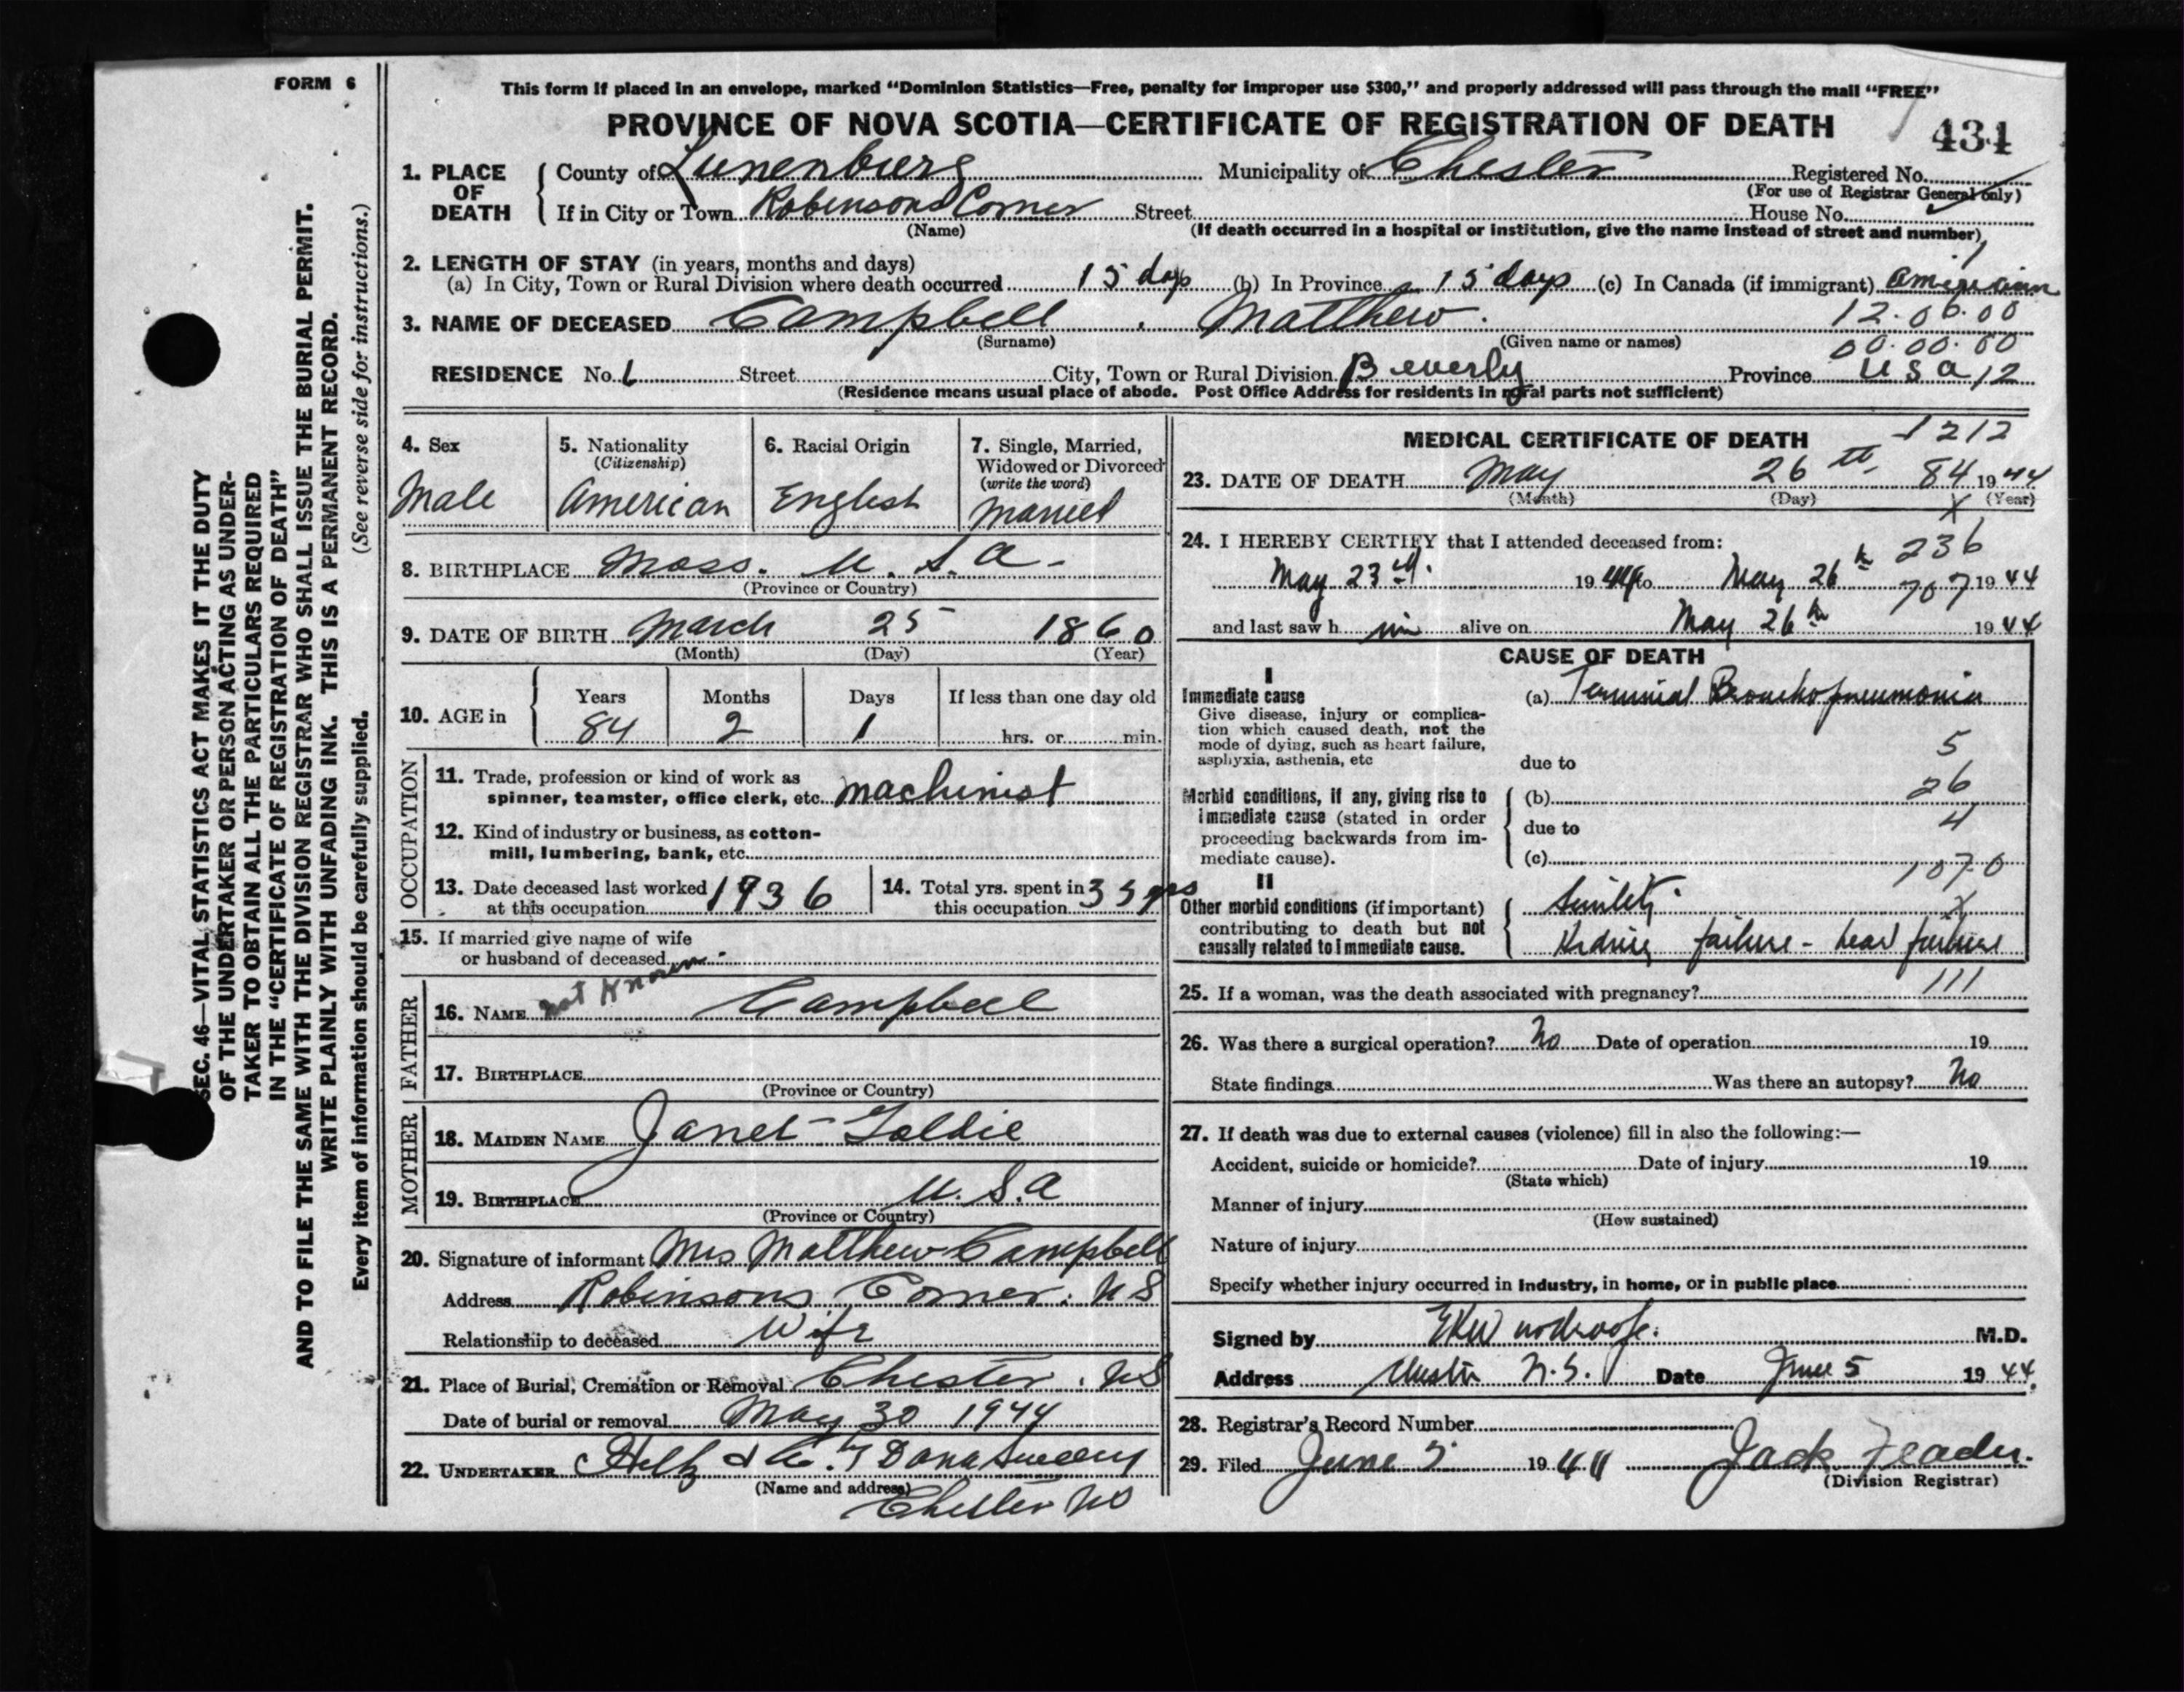 FORM 6
This form if placed in an envelope, marked "Dominion Statistics—Free, penalty for improper use $300," and properly addressed will pass through the mail "FREE"
PROVINCE OF NOVA SCOTIA—CERTIFICATE OF REGISTRATION OF DEATH
434
1. PLACE OF DEATH County of Lunenburg Municipality of Chester Registered No.
(For use of Registrar General only)
If in City or Town Robinsons Corner Street House No.
(Name) (If death occurred in a hospital or institution, give the name instead of street and number)
2. LENGTH OF STAY (in years, months and days)
(a) In City, Town or Rural Division where death occurred 15 days (b) In Province 15 days (c) In Canada (if immigrant) American
3. NAME OF DECEASED Campbell, Matthew. 12.06.00
(Surname) (Given name or names) 00.00.00
RESIDENCE No. 6 Street City, Town or Rural Division Beverly Province U S a 12
(Residence means usual place of abode. Post Office Address for residents in rural parts not sufficient)
4. Sex Male
5. Nationality (Citizenship) American
6. Racial Origin English
7. Single, Married, Widowed or Divorced (write the word) Married
8. BIRTHPLACE Mass. U. S. A-
(Province or Country)
9. DATE OF BIRTH March 25 1860
(Month) (Day) (Year)
10. AGE in Years 84 Months 2 Days 1 If less than one day old hrs. or min.
OCCUPATION
11. Trade, profession or kind of work as
spinner, teamster, office clerk, etc. machinist
12. Kind of industry or business, as cotton-
mill, lumbering, bank, etc.
13. Date deceased last worked at this occupation 1936
14. Total yrs. spent in this occupation 35 yrs
15. If married give name of wife
or husband of deceased
FATHER
16. NAME not Known Campbell
17. BIRTHPLACE
(Province or Country)
MOTHER
18. MAIDEN NAME Janet Goldie
19. BIRTHPLACE U. S. A
(Province or Country)
20. Signature of informant Mrs Matthew Campbell
Address Robinsons Corner. N S
Relationship to deceased Wife
21. Place of Burial, Cremation or Removal Chester. NS
Date of burial or removal May 30 1944
22. UNDERTAKER Dana Sweeny
(Name and address)
Chester NS
MEDICAL CERTIFICATE OF DEATH 1212
23. DATE OF DEATH May 26th 84 1944
(Month) (Day) (Year)
X
24. I HEREBY CERTIFY that I attended deceased from: 236
May 23rd. 1944 to May 26th 707 1944
and last saw h im alive on May 26th 1944
CAUSE OF DEATH
I
Immediate cause
Give disease, injury or complication which caused death, not the mode of dying, such as heart failure, asphyxia, asthenia, etc
(a) Terminal Bronchopneumonia
5
due to
Morbid conditions, if any, giving rise to immediate cause (stated in order proceeding backwards from immediate cause).
(b) 26
due to 4
(c) 107.0
II
Other morbid conditions (if important) contributing to death but not causally related to immediate cause.
Senility. X
Kidney failure - heart failure
111
25. If a woman, was the death associated with pregnancy?
26. Was there a surgical operation? No Date of operation 19
State findings Was there an autopsy? No
27. If death was due to external causes (violence) fill in also the following:—
Accident, suicide or homicide? Date of injury 19
(State which)
Manner of injury
(How sustained)
Nature of injury
Specify whether injury occurred in industry, in home, or in public place
Signed by M.D.
Address Chester N.S. Date June 5 1944.
28. Registrar's Record Number
29. Filed June 5 1944 Jack
(Division Registrar)
SEC. 46—VITAL STATISTICS ACT MAKES IT THE DUTY
OF THE UNDERTAKER OR PERSON ACTING AS UNDER-
TAKER TO OBTAIN ALL THE PARTICULARS REQUIRED
IN THE "CERTIFICATE OF REGISTRATION OF DEATH"
AND TO FILE THE SAME WITH THE DIVISION REGISTRAR WHO SHALL ISSUE THE BURIAL PERMIT.
WRITE PLAINLY WITH UNFADING INK. THIS IS A PERMANENT RECORD.
Every item of information should be carefully supplied. (See reverse side for instructions.)